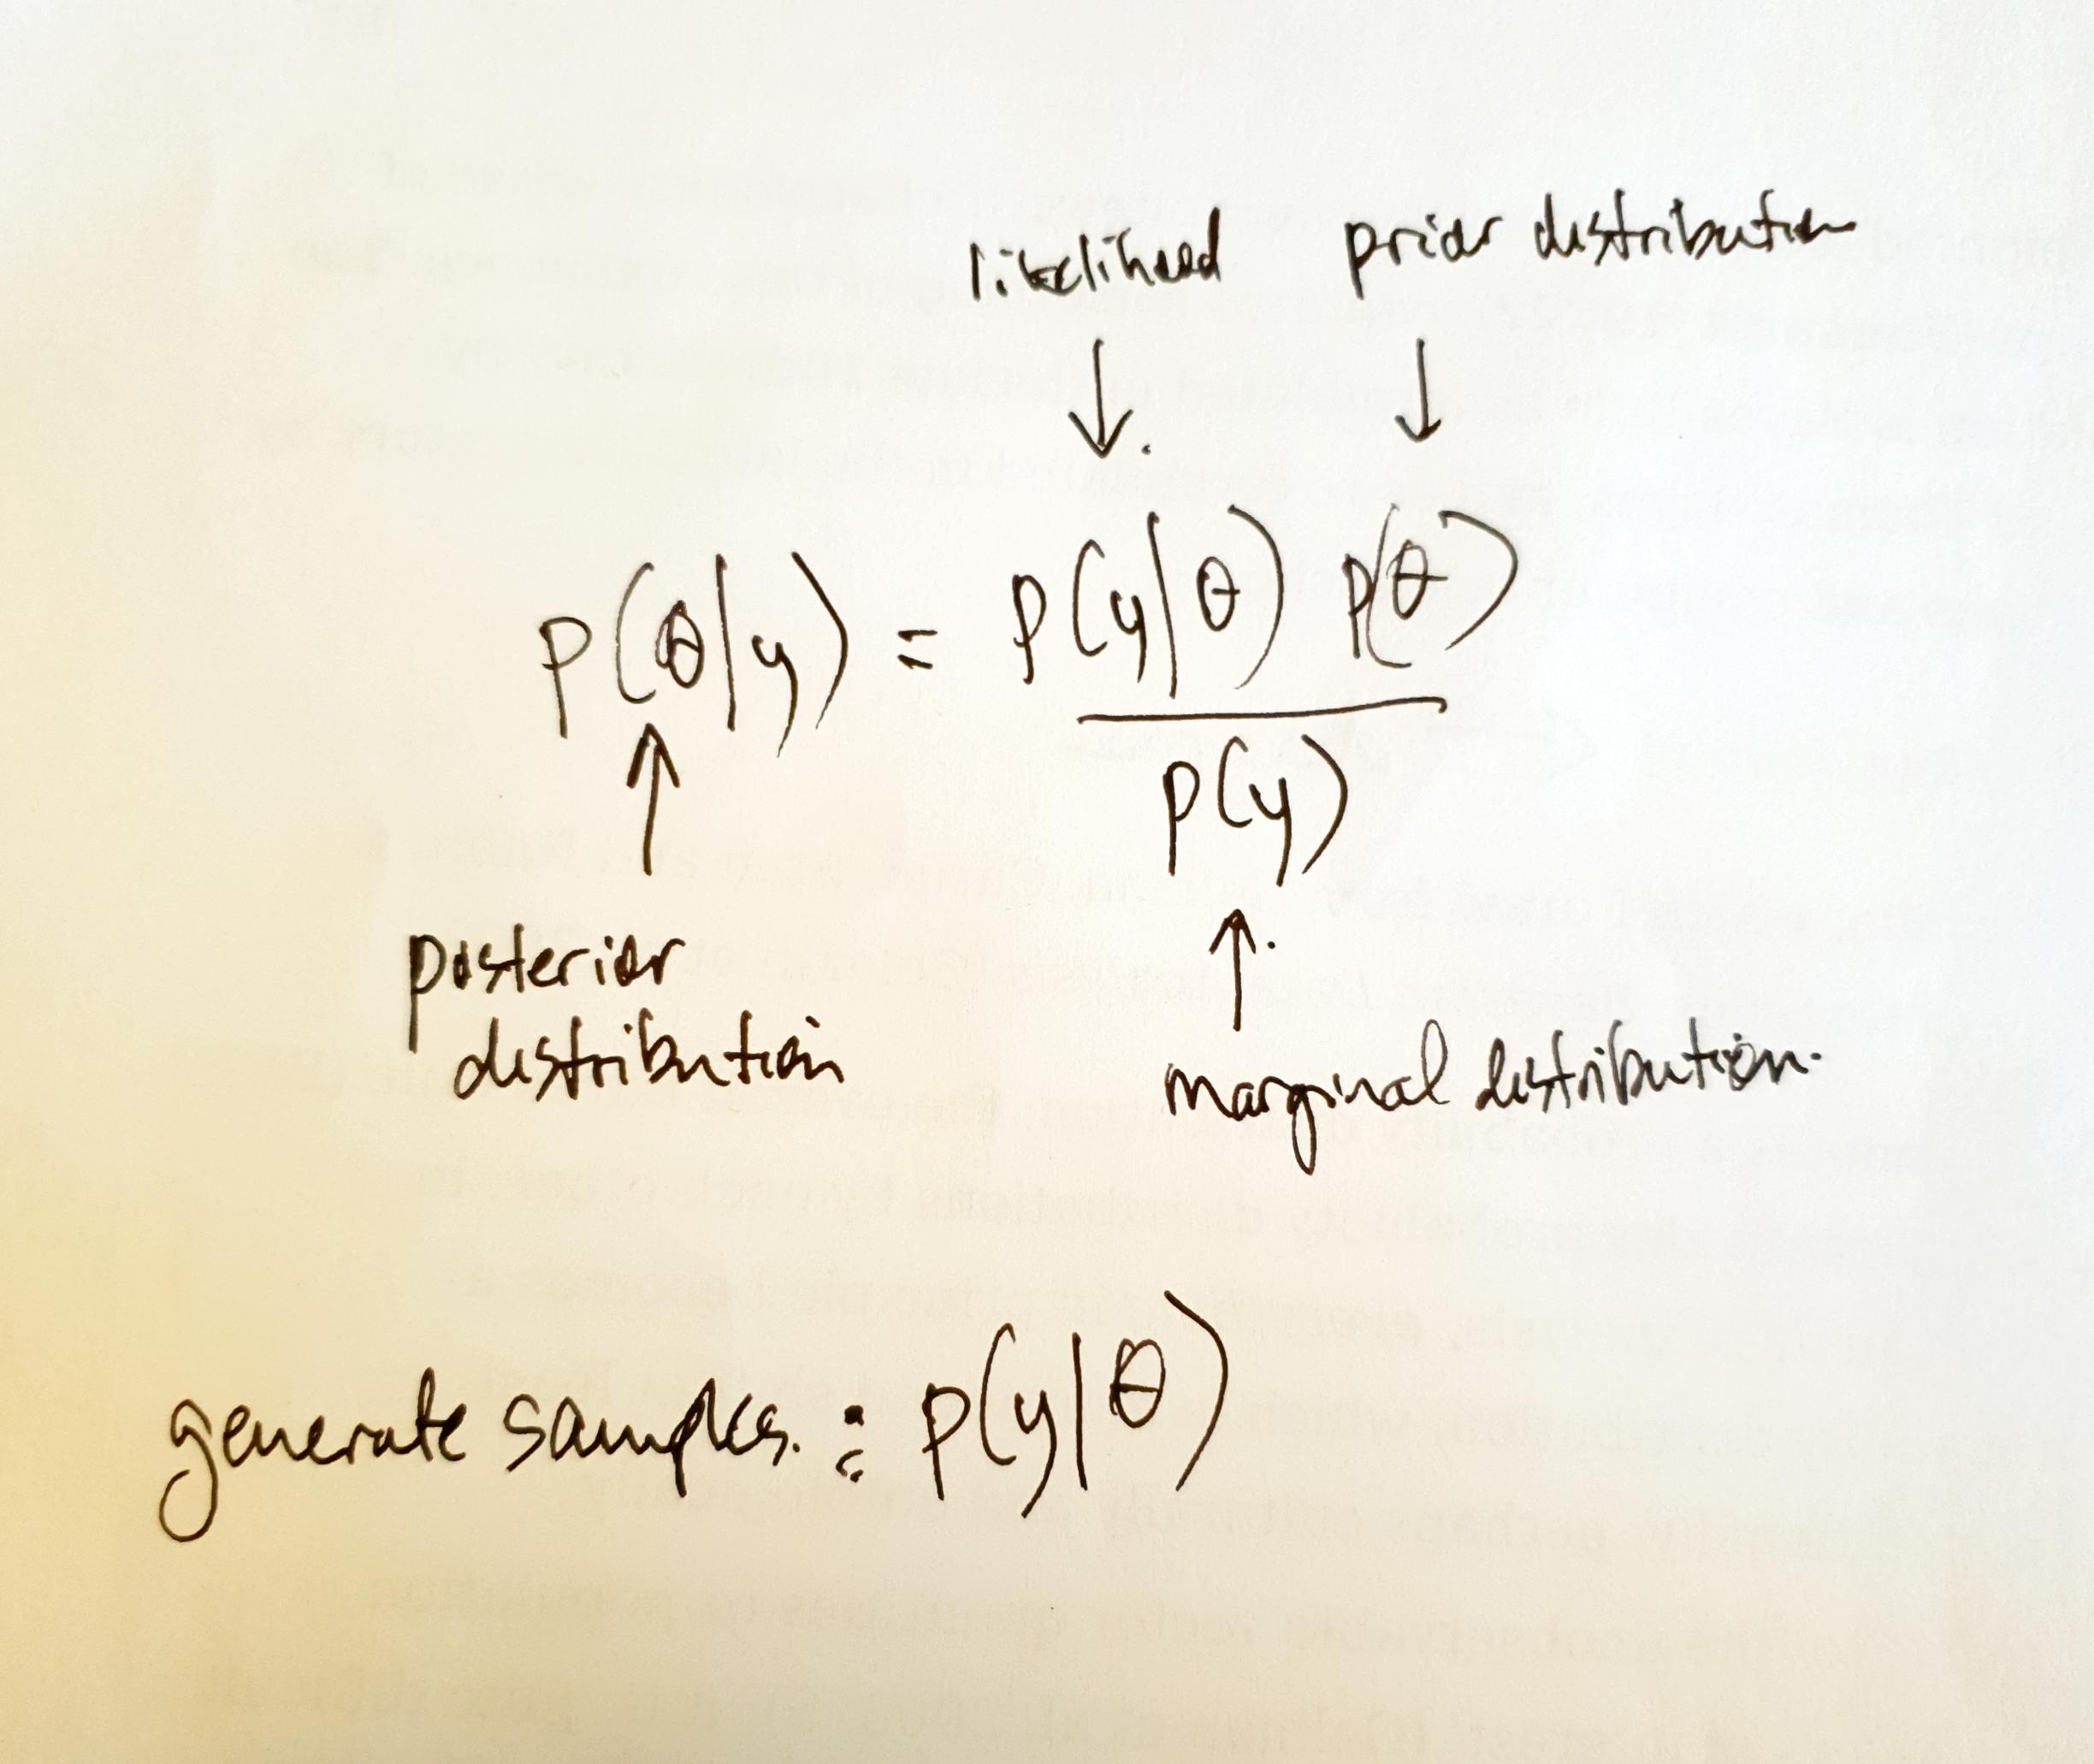 likelihood prior distribution
↓. ↓
P(θ|y) = P(y|θ) P(θ)
P(y)
↑ ↑.
posterior
distribution
marginal distribution.
generate samples. : = P(y|θ)